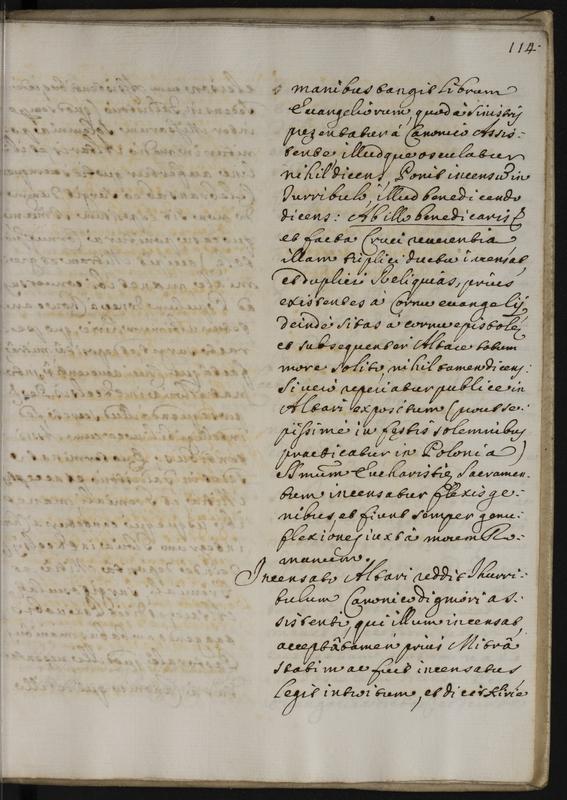 114.
manibus tangit librum
Euangeliorum quod à sinistris
prezentatur à Canonico Assis-
tente illudque osculatur
nihil dicens, Ponit incensũ in
Turribulo, illud benedicendo
dicens: Ab illo benedicaris &
et facta Cruci reuerentia
illam triplici ductu incensat
et duplici Reliquias, prius
existentes à Cornu euangelij
deinde sitas à cornu epistolę
et subsequenter Altare totum
more solito, nihil tamen dicens:
Si uero reperiatur publice in
Altari expositum (prout se-
pissimè in festis solemnibus
practicatur in Polonia)
SSmum Eucharistię Sacramen-
tum incensatur flexis ge-
nibus, et fiunt semper genu-
flexiones iuxta morem Ro-
manum.
Incensato Altari reddit Thurri-
bulum Canonico digniori as-
sistenti, qui illum incensat
acceptâ tamen prius Mitrâ
statim ac fuit incensatus
legit introitum, et dicit Kirie